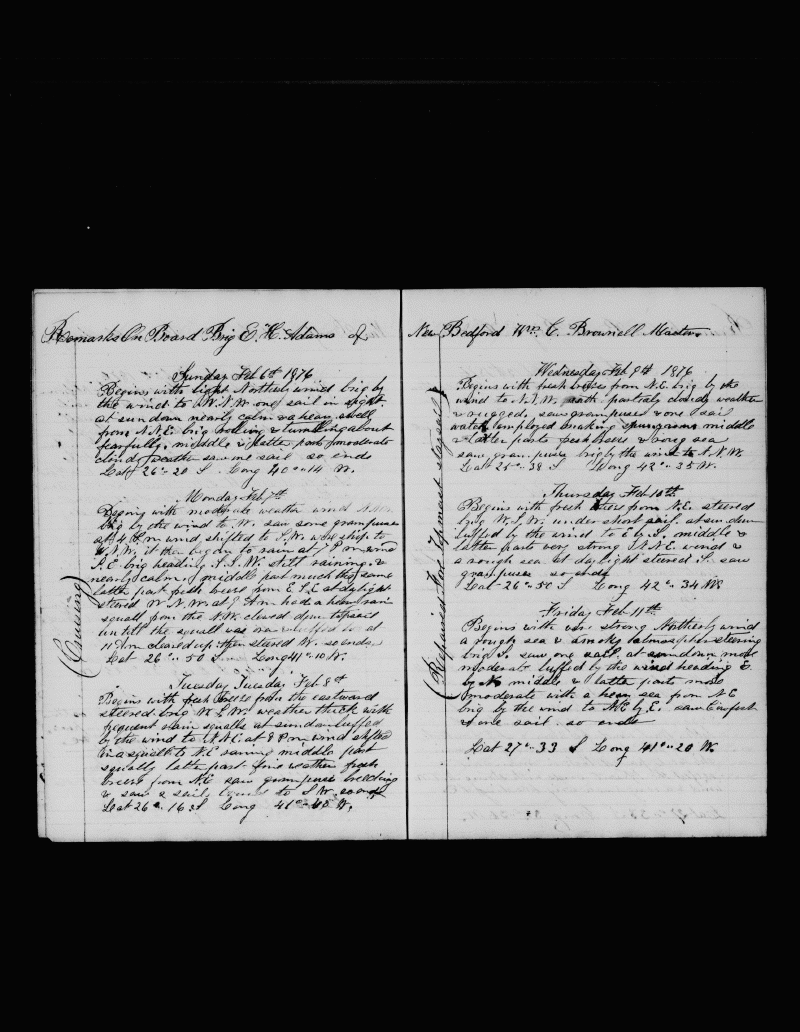 Remarks On Board Brig E. H. Adams of
Sunday Feb 6th 1876
Begins with light Northerly wind brig by
the wind to W.N.W. one sail in sight.
at sundown nearly calm a heavy swell
from N.N.E. brig rolling & tumbling about
fearfully. middle & latter parts moderate
cloudy weather saw one sail so ends
Lat 26"20 S Long 40"14 W.
Monday Feb 7th
Begins with moderate weather wind
brig by the wind to W. saw some grampuses
at 4 P.m wind shifted to S.W. wore ship to
W.N.W. it then began to rain at 7 P m wind
S.E. brig heading S.S.W. still raining &
nearly calm. middle part much the same
latter part fresh breeze from E.S.E at daylight
stered W.N.W. at 9 A m had a heavy rain
squall from the N.W. clewed down topsail
untill the squall was over at
11 Am cleared up then stered W. so ends
Lat 26"50 S Long 41"10 W.
(Cruising)
Tuesday Tuesday Feb 8th
Begins with fresh breeze from the eastward
steered brig W.S.W. weather thick with
frequent rain squalls at sundown luffed
by the wind to N.N.E. at 8 P m wind shifted
in a squall to N.E. raining middle part
squally latter part fair weather fresh
breeze from N.E. saw grampuses breaching
& saw 2 sails bound to S.W. so ends
Lat 26" 16 S Long 41" W.
New Bedford Wm C. Brownell Master
Wednesday Feb 9th 1876
Begins with fresh breeze from N.E. brig by the
wind to N.N.W. partialy cloudy weather
& rugged, saw grampuses & one sail
watch employed making spunyarn middle
& latter parts fresh breeze & heavy sea
saw grampuses brig by the wind to N.N.W.
Lat 25" 38 S Long 42" 35 W.
Thursday Feb 10th
Begins with fresh breeze from N.E. steered
brig W.S.W. under short sail. at sundown
luffed by the wind to E by S. middle &
latter parts very strong N.N.E. wind &
a rough sea at daylight steered S. saw
grampuses so ends
Lat 26" 50 S Long 42" 34 W.
(Repaired Fore Topmast staysail)
Friday Feb 11th
Begins with very strong Northerly wind
a rough sea & smoky atmosphere steering
brig S. saw one sail. at sundown more
moderate luffed by the wind heading E.
by N. middle & latter parts more
moderate with a heavy sea from N E
brig by the wind to N.E. by E. saw
& one sail. so ends
Lat 27" 33 S Long 41" 20 W.